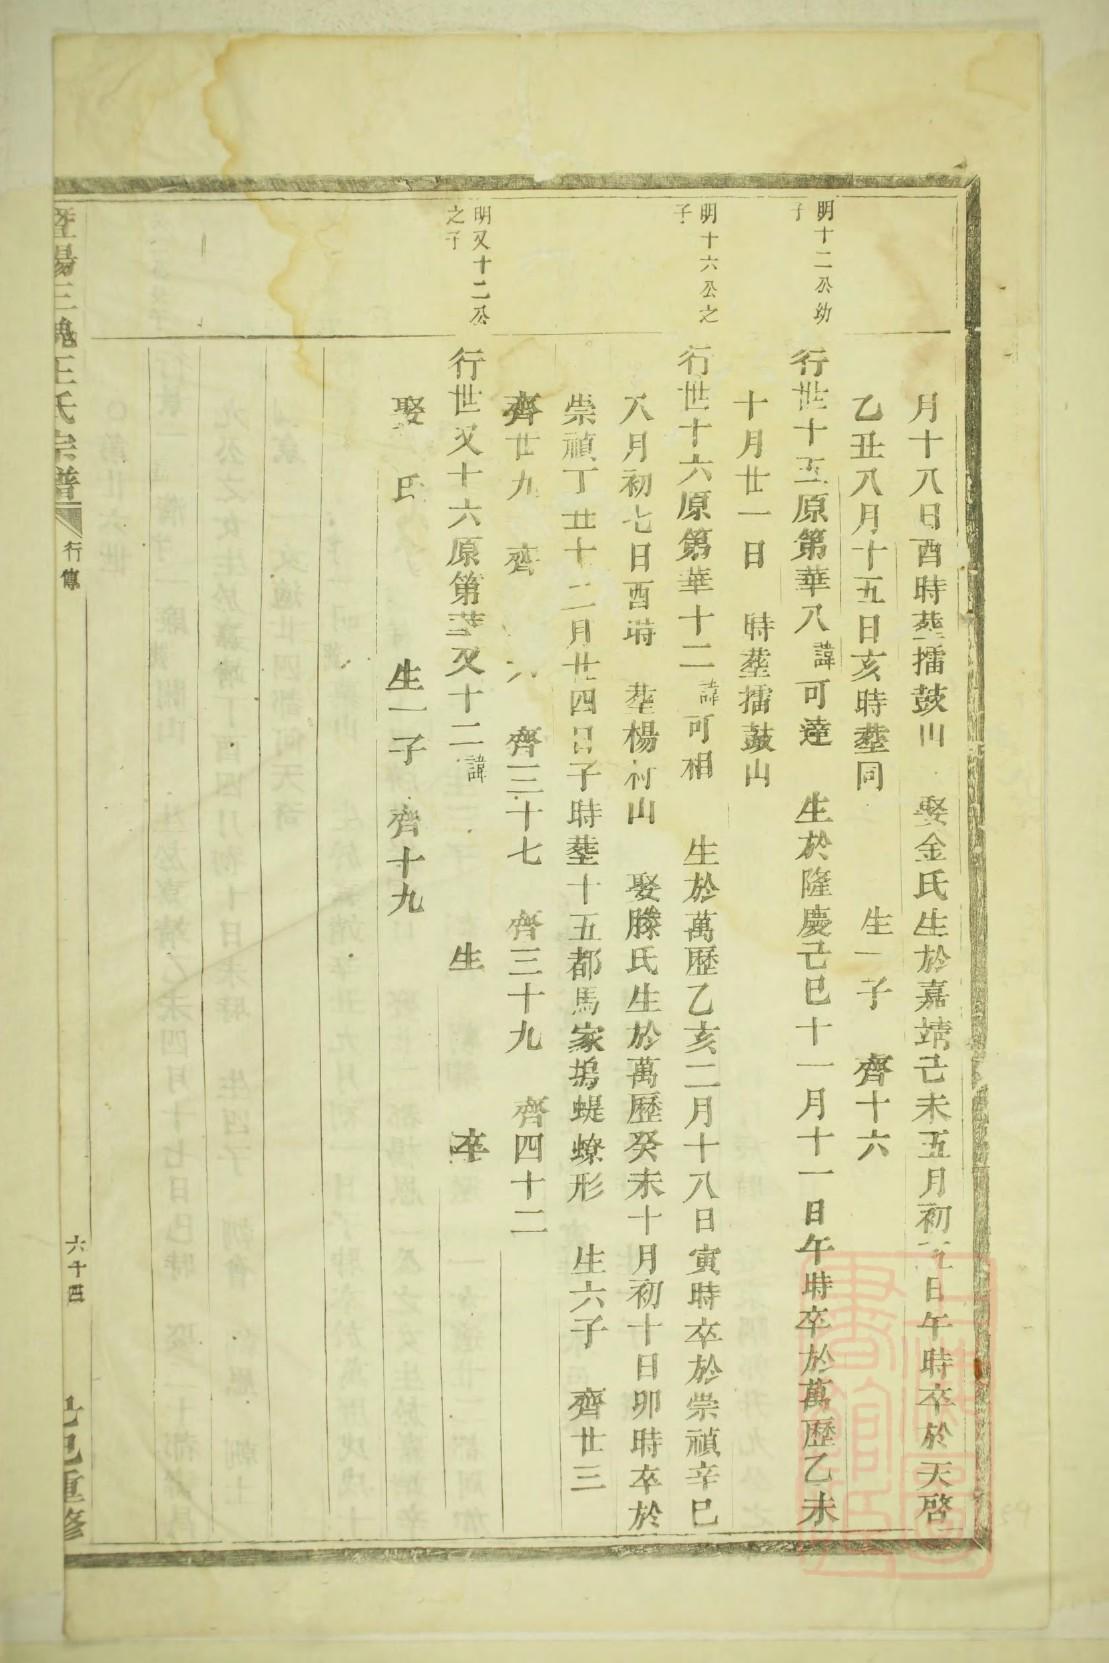 月十八日酉時塟擂鼓山 娶金氏生於嘉靖己未五月初五日午時卒於天啓
乙丑八月十五日亥時塟同 生一子 齊十六
明十二公幼
子
行世十五原第華八諱可達 生於隆慶己巳十一月十一日午時卒於萬歷乙未
十月廿一日 時塟擂鼓山
明十六公之
子
行世十六原第華十二諱可相 生於萬歷乙亥二月十八日寅時卒於崇禎辛巳
八月初七日酉時 塟楊村山 娶滕氏生於萬歷癸未十月初十日卯時卒於
崇禎丁丑十二月廿四日子時塟十五都馬家塢蜈蟟形 生六子 齊廿三
齊廿九 齊 六 齊三十七 齊三十九 齊四十二
明又十二公
之子
行世又十六原第華又十二諱 生 卒
娶 氏 生一子 齊十九
暨陽三槐王氏宗譜
行傳
六十四
己巳重修